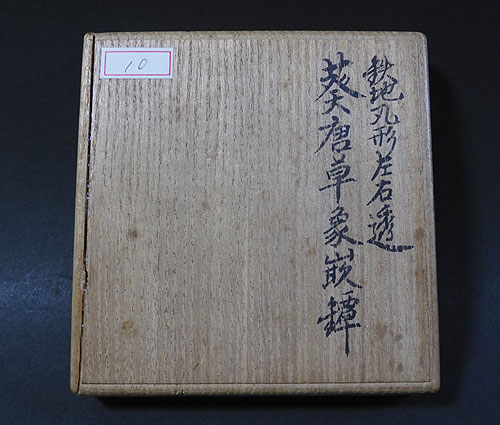 鉄地丸形左右透
葵唐草象嵌鐔
10